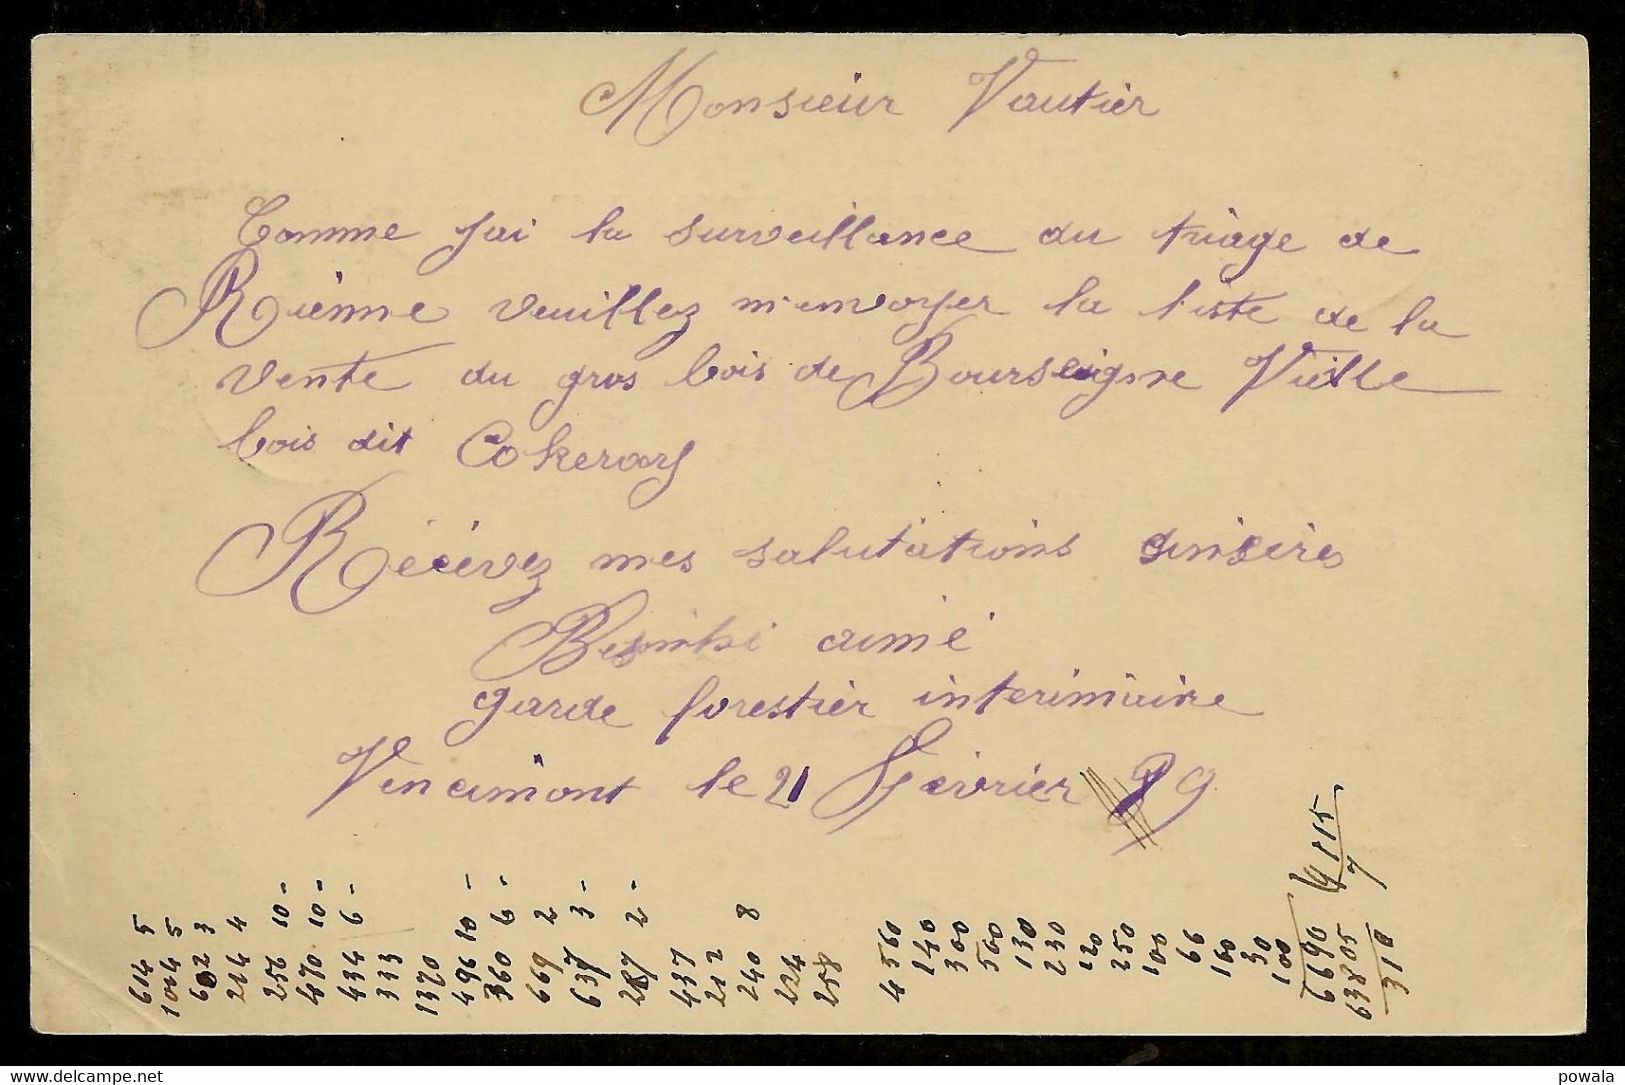 Monsieur Vautièr
Comme jai la surveillance du triage de
Riènne veuillez m'envoyer la liste de la
vente du gros bois de Bourseigne Vielle
bois dit Cokeray
Récévez mes salutations sinsères
aimé
garde forestièr interimaire
Vencimont le 21 Févrièr 9
614 5
1004 5
602 3
214 4
256 10 -
470 10 -
434 6 -
333
1370
496 10 -
360 6 -
669 2
637 3 -
267 2 -
437
212
240 8
224
258
4560
140
300
500
130
230
120
250
100
66
160
30
100
6690
63805
310
powala